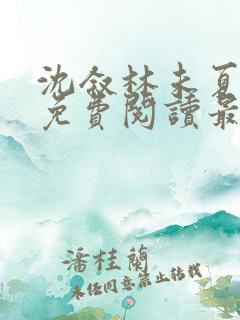 沈叙林未夏
免費閱讀最
潘桂蘭
未经同意禁止转载